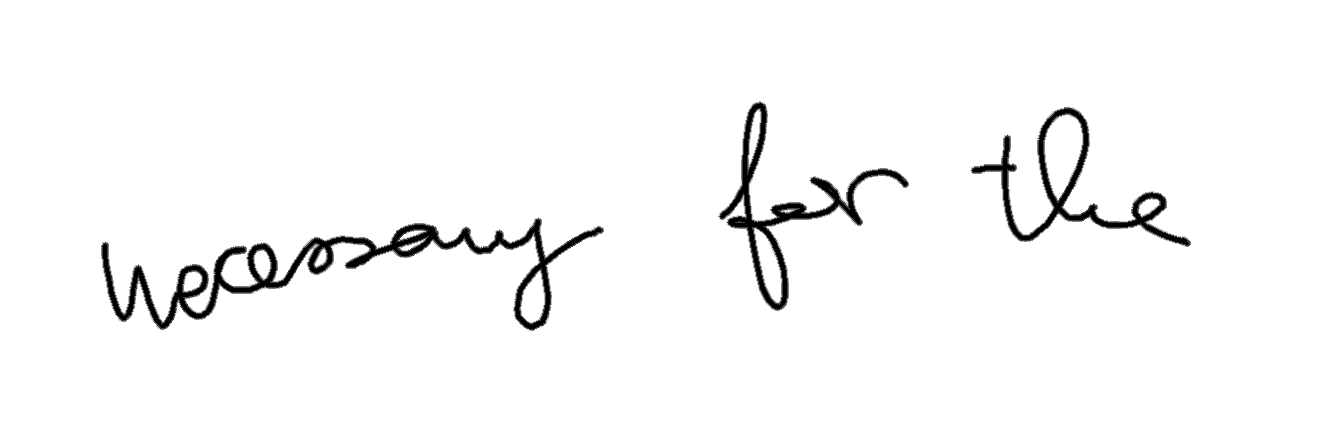 necessary for the